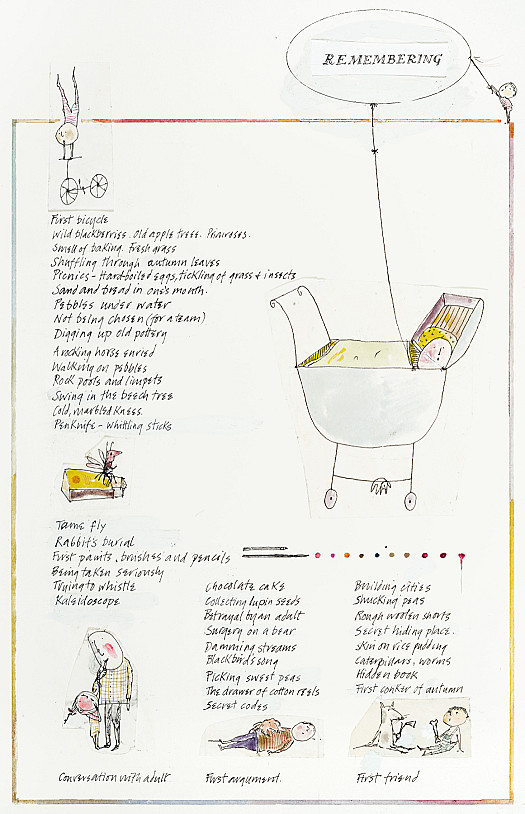 REMEMBERING
First bicycle
Wild blackberries. Old apple trees. Primroses.
Smell of baking. Fresh grass
Shuffling through autumn leaves
Picnics - Hardboiled eggs, tickling of grass & insects
Sand and bread in one's mouth.
Pebbles under water
Not being chosen (for a team)
Digging up old pottery
A rocking horse
Walking on pebbles
Rock pools and limpets
Swing in the beech tree
Cold, marbled knees.
Penknife - whittling sticks
Tame fly
Rabbit's burial
First paints, brushes and pencils
Being taken seriously
Trying to whistle
Kaleidoscope
Chocolate cake
Collecting lupin seeds
Betrayal by an adult
Surgery on a bear
Damming streams
Blackbird's song
Picking sweet peas
The drawer of cotton reels
Secret codes
Building cities
Shucking peas
Rough woollen shorts
Secret hiding place.
Skin on rice pudding
Caterpillars, worms
Hidden book
First conker of autumn
Conversation with adult
First argument.
First friend